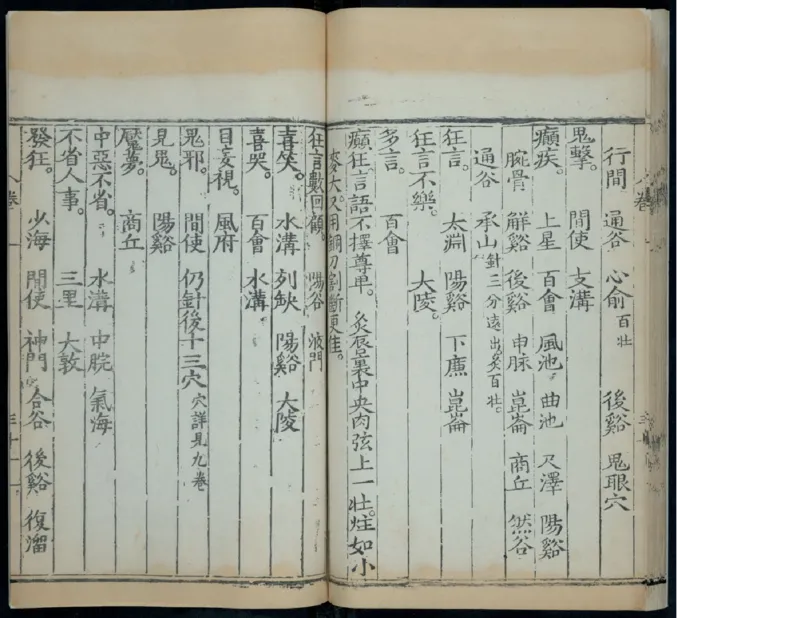 行間 通谷 心俞百壮 後谿 鬼眼穴
鬼擊。 間使 支溝
癲疾。 上星 百會 風池 曲池 尺澤 陽谿
腕骨 解谿 後谿 申脉 崑崙 商丘 然谷
通谷 承山針三分速出灸百壮。
狂言。 太淵 陽谿 下廉 崑崙
狂言不樂。 大陵。
多言。 百會
癲狂言語不擇尊卑。 灸唇裏中央肉弦上一壮。炷如小
麥大。又用鋼刀割斷更佳。
狂言數回顧。 陽谷 液門
喜笑。 水溝 列缺 陽谿 大陵
喜哭。 百會 水溝
目妄視。 風府
鬼邪。 間使 仍針後十三穴穴詳見九卷
見鬼。 陽谿
魘夢。 商丘
中惡不省。 水溝 中脘 氣海
不省人事。 三里 大敦
發狂。 少海 間使 神門 合谷 後谿 復溜
八卷